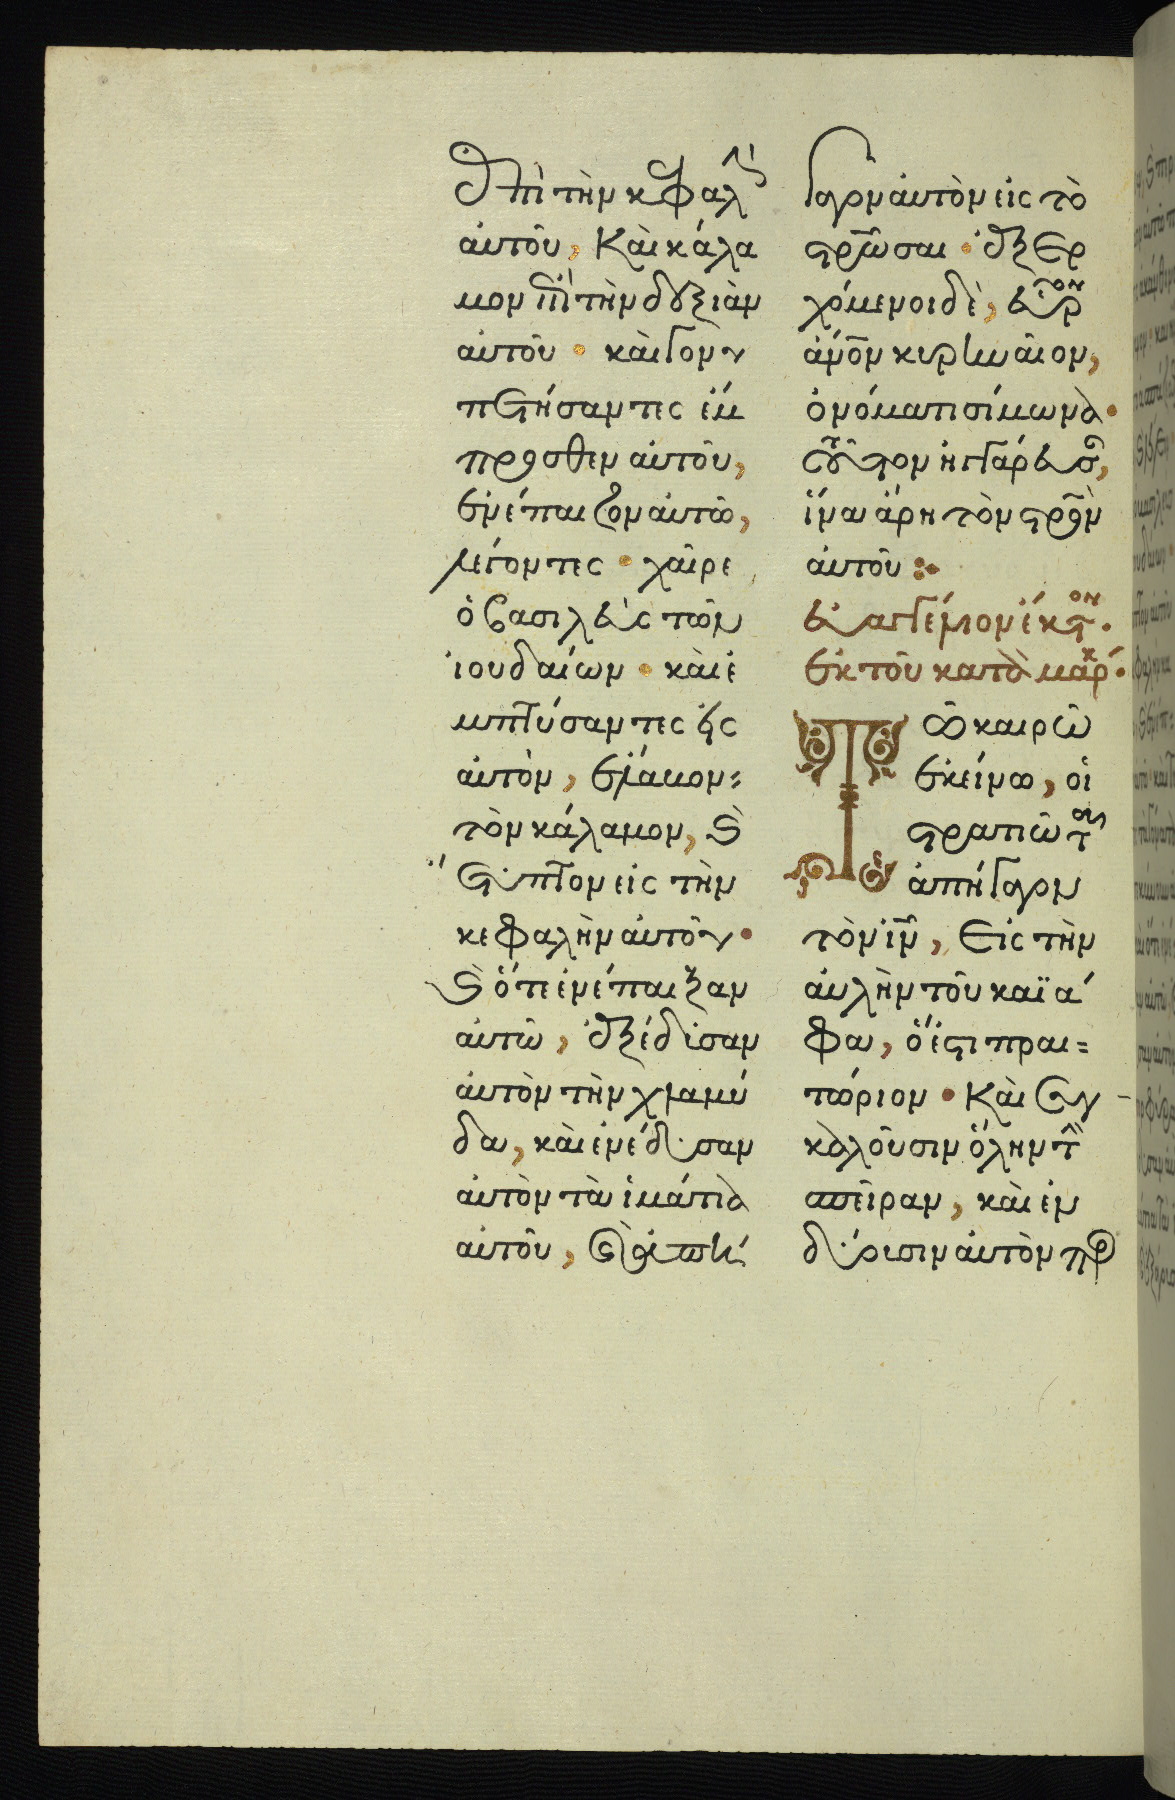 ἐπὶ τὴν κεφαλὴν
αὐτοῦ, καὶ κάλα
μον ἐπὶ τὴν δεξιὰν
αὐτοῦ · καὶ γονυ
πετήσαντες ἔμ
προσθεν αὐτοῦ,
ἐνέπαιζον αὐτῶ,
λέγοντες · χαῖρε,
ὁ βασιλεὺς τῶν
ἰουδαίων · καὶ ἐ
μπτύσαντες εἰς
αὐτὸν, ἔλαβον
τὸν κάλαμον, καὶ
ἔτυπτον εἰς τὴν
κεφαλὴν αὐτοῦ ·
καὶ ὅτε ἐνέπαιξαν
αὐτῶ, ἐξέδυσαν
αὐτὸν τὴν χλαμύ
δα, καὶ ἐνέδυσαν
αὐτὸν τὰ ἱμάτια
αὐτοῦ, καὶ ἀπή
γαγον αὐτὸν εἰς τὸ
σρῶσαι · ἐξερ
χόμενοι δὲ, εὗρον
ἄνον κυρηναῖον,
ὀνόματι σίμωνα ·
τοῦτον ἠγγάρευσαν,
ἵνα ἄρη τὸν σρὸν
αὐτοῦ :·
εὐαγγέλιον ἕκτον ·
ἐκ τοῦ κατὰ μάρκ ·
Τῶ καιρῶ
ἐκείνω, οἱ
στρατιῶται
ἀπήγαγον
τὸν ἰν, εἰς τὴν
αὐλὴν τοῦ καϊά
φα, ὅ ἐστι πραι
τώριον · καὶ συγ
καλοῦσιν ὅλην τὴν
σπεῖραν, καὶ ἐν
δύουσιν αὐτὸν πορ